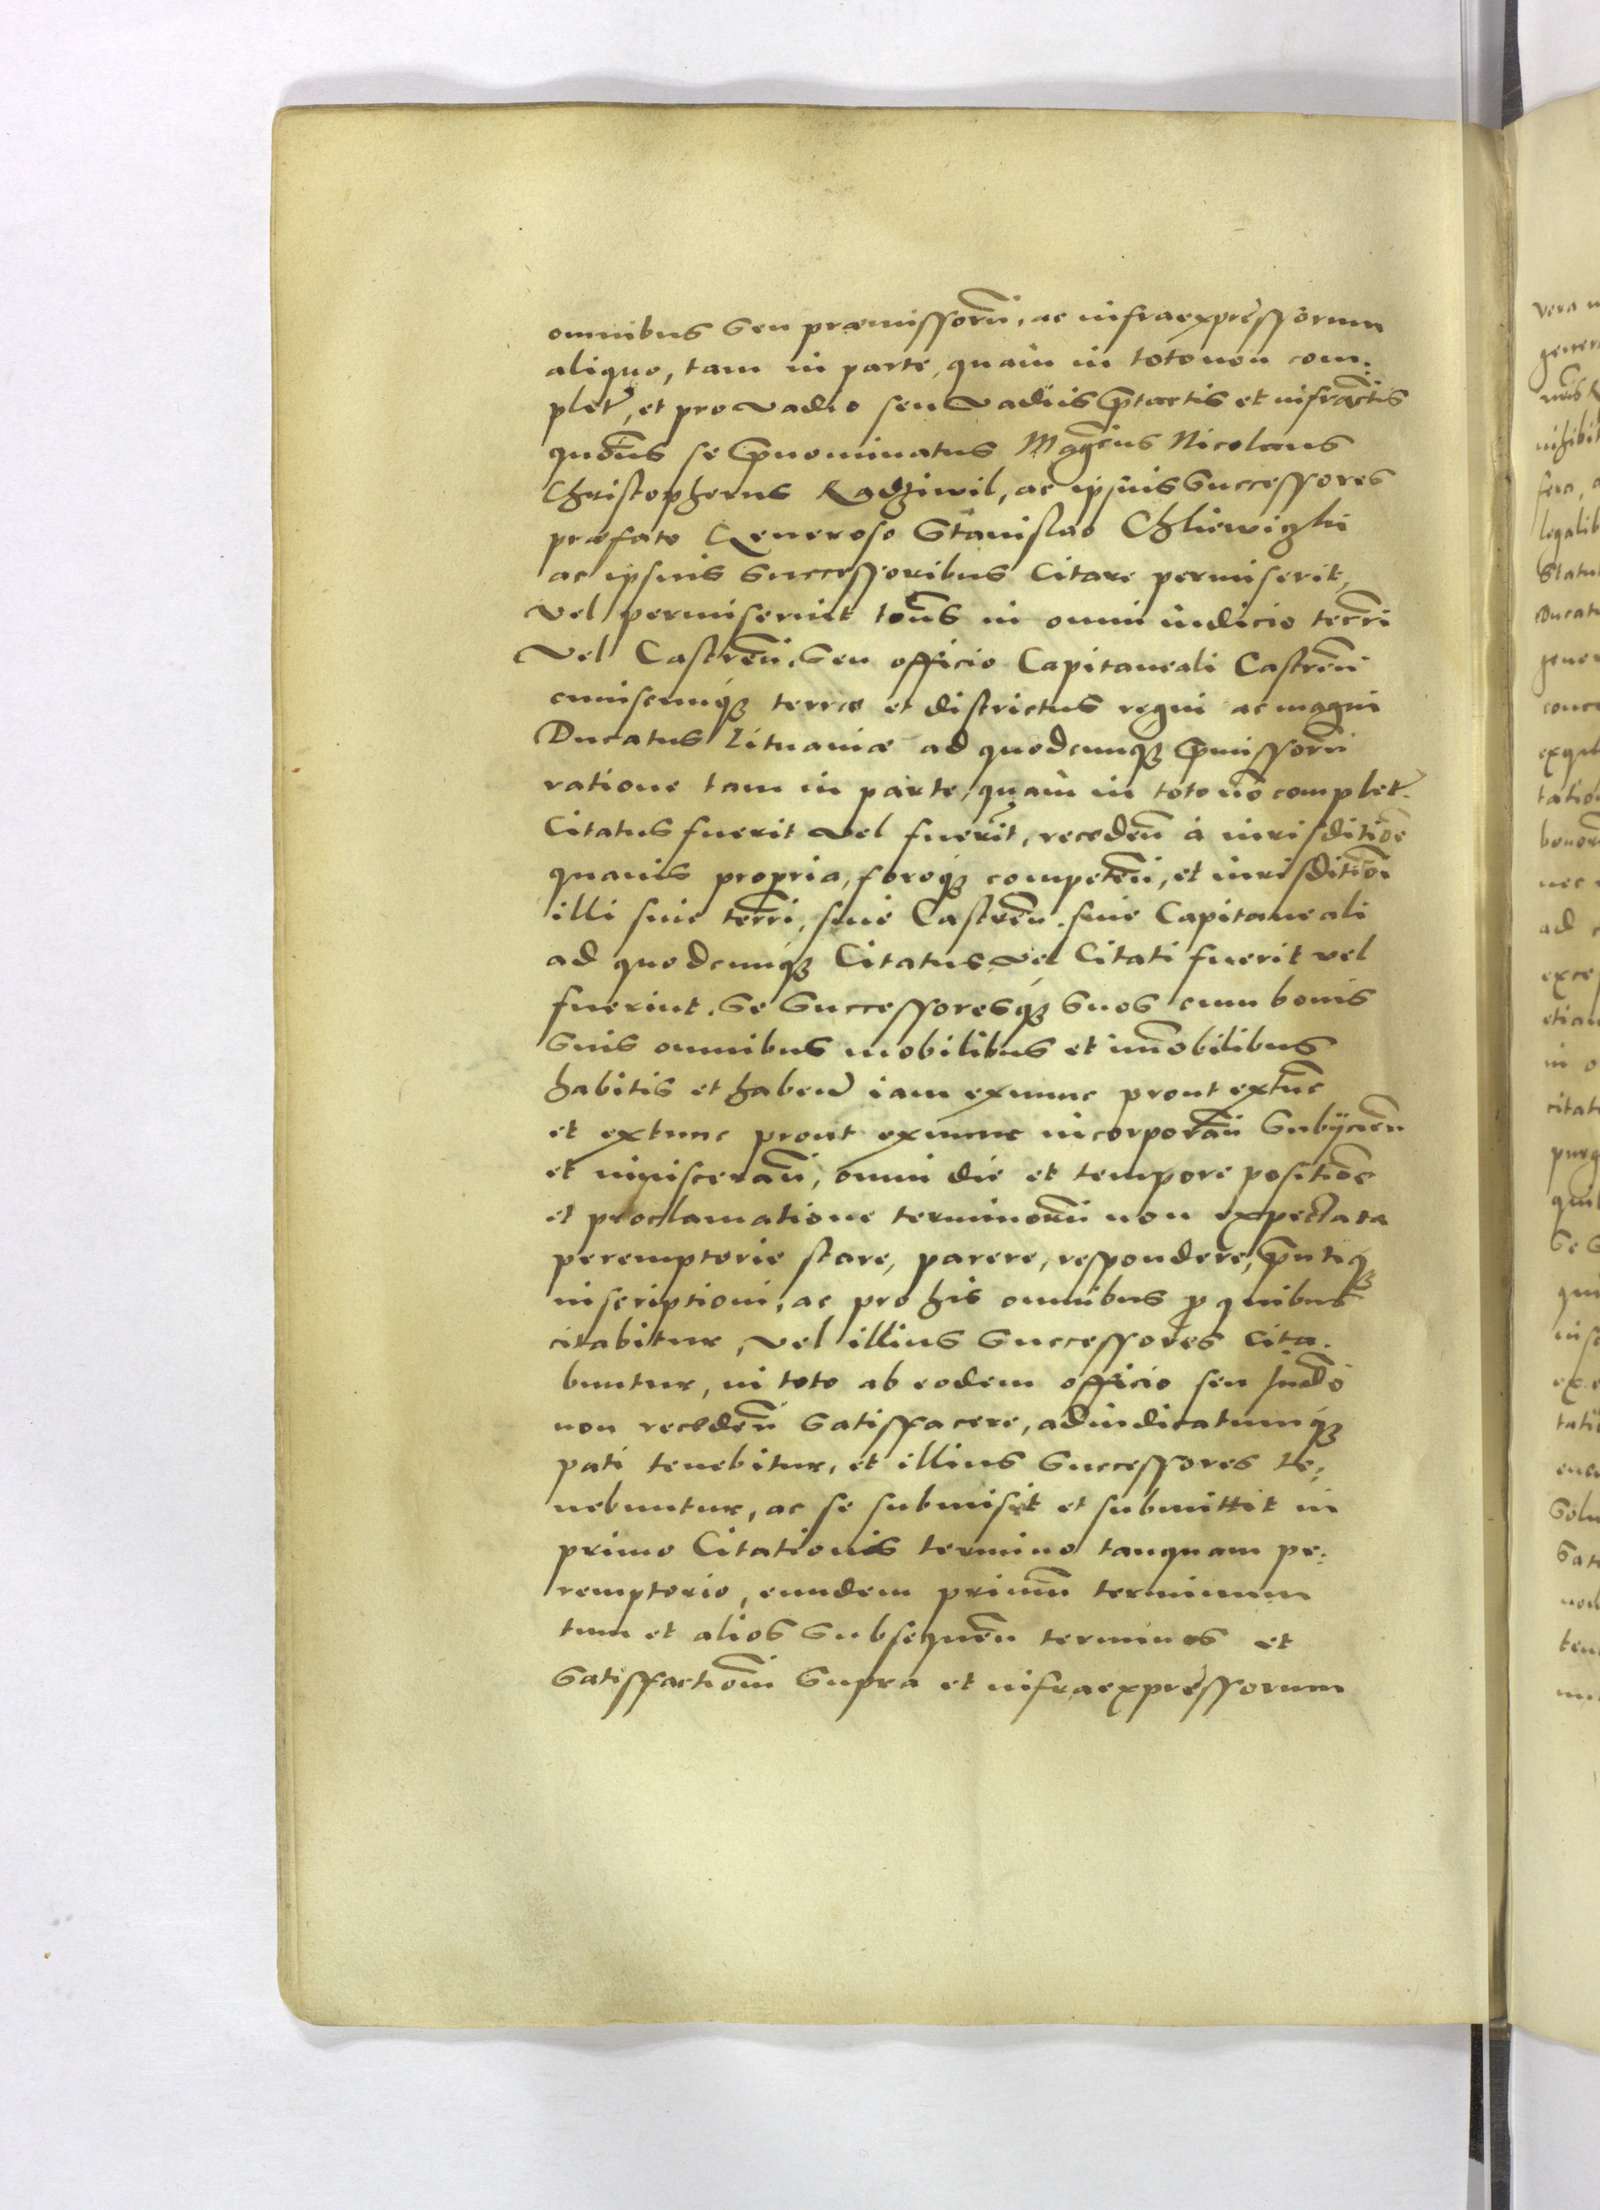 omnibus seu præmissorũ, ac infraexpressorum
aliquo, tam in parte, quam in toto non com:
plet̃, et pro vadio seu vadiis p̃tactis et infractis
quotiẽs se p̃nominatus Magc̃us Nicolaus
Christopherus Radziwil, ac ipsius successores
præfato Generoso Stanislao Chliewizki
ac ipsius successoribus citare permiserit,
vel permiserint totiẽs in omni iudicio terrĩ
vel Castreñ, seu officio Capitaneali Castreñ
cuiuscunq̃ terræ et districtus regni ac magni
Ducatus Lituaniæ ad quodcunq̃ p̃missorũ
ratione tam in parte, quam in toto nõ complet̃.
Citatus fuerit vel fuerĩt, recedeñ à iurisditiõe
quauis propria, foroq̃ competeñ, et iurisditiõi
illi siue terrĩ, siue Castreñ, siue Capitaneali
ad quodcunq̃ Citatus vel Citati fuerit vel
fuerint, se successoresq̃ suos cum bonis
suis omnibus mobilibus et im̃obilibus
habitis et habeñ iam exnunc prout extũc
et extunc prout exnunc incorporañ subijcieñ
et inuiscerañ, omni die et tempore positiõe
et proclamatione terminorũ non expectata
peremptorie stare, parere, respondere, p̃ntiq̃
inscriptioni, ac pro his omnibus p quibus
citabitur, vel illius successores cita:
buntur, in toto ab eodem officio seu Iudõ
non recedeñ satisfacere, adiudicatumq̃
pati tenebitur, et illius successores te:
nebuntur, ac se submisit et submittit in
primo Citationis termino tanquam pe:
remptorio, eundem primũ terminum
tum et alios subsequeñ terminos et
satisfactiõm supra et infraexpressorum